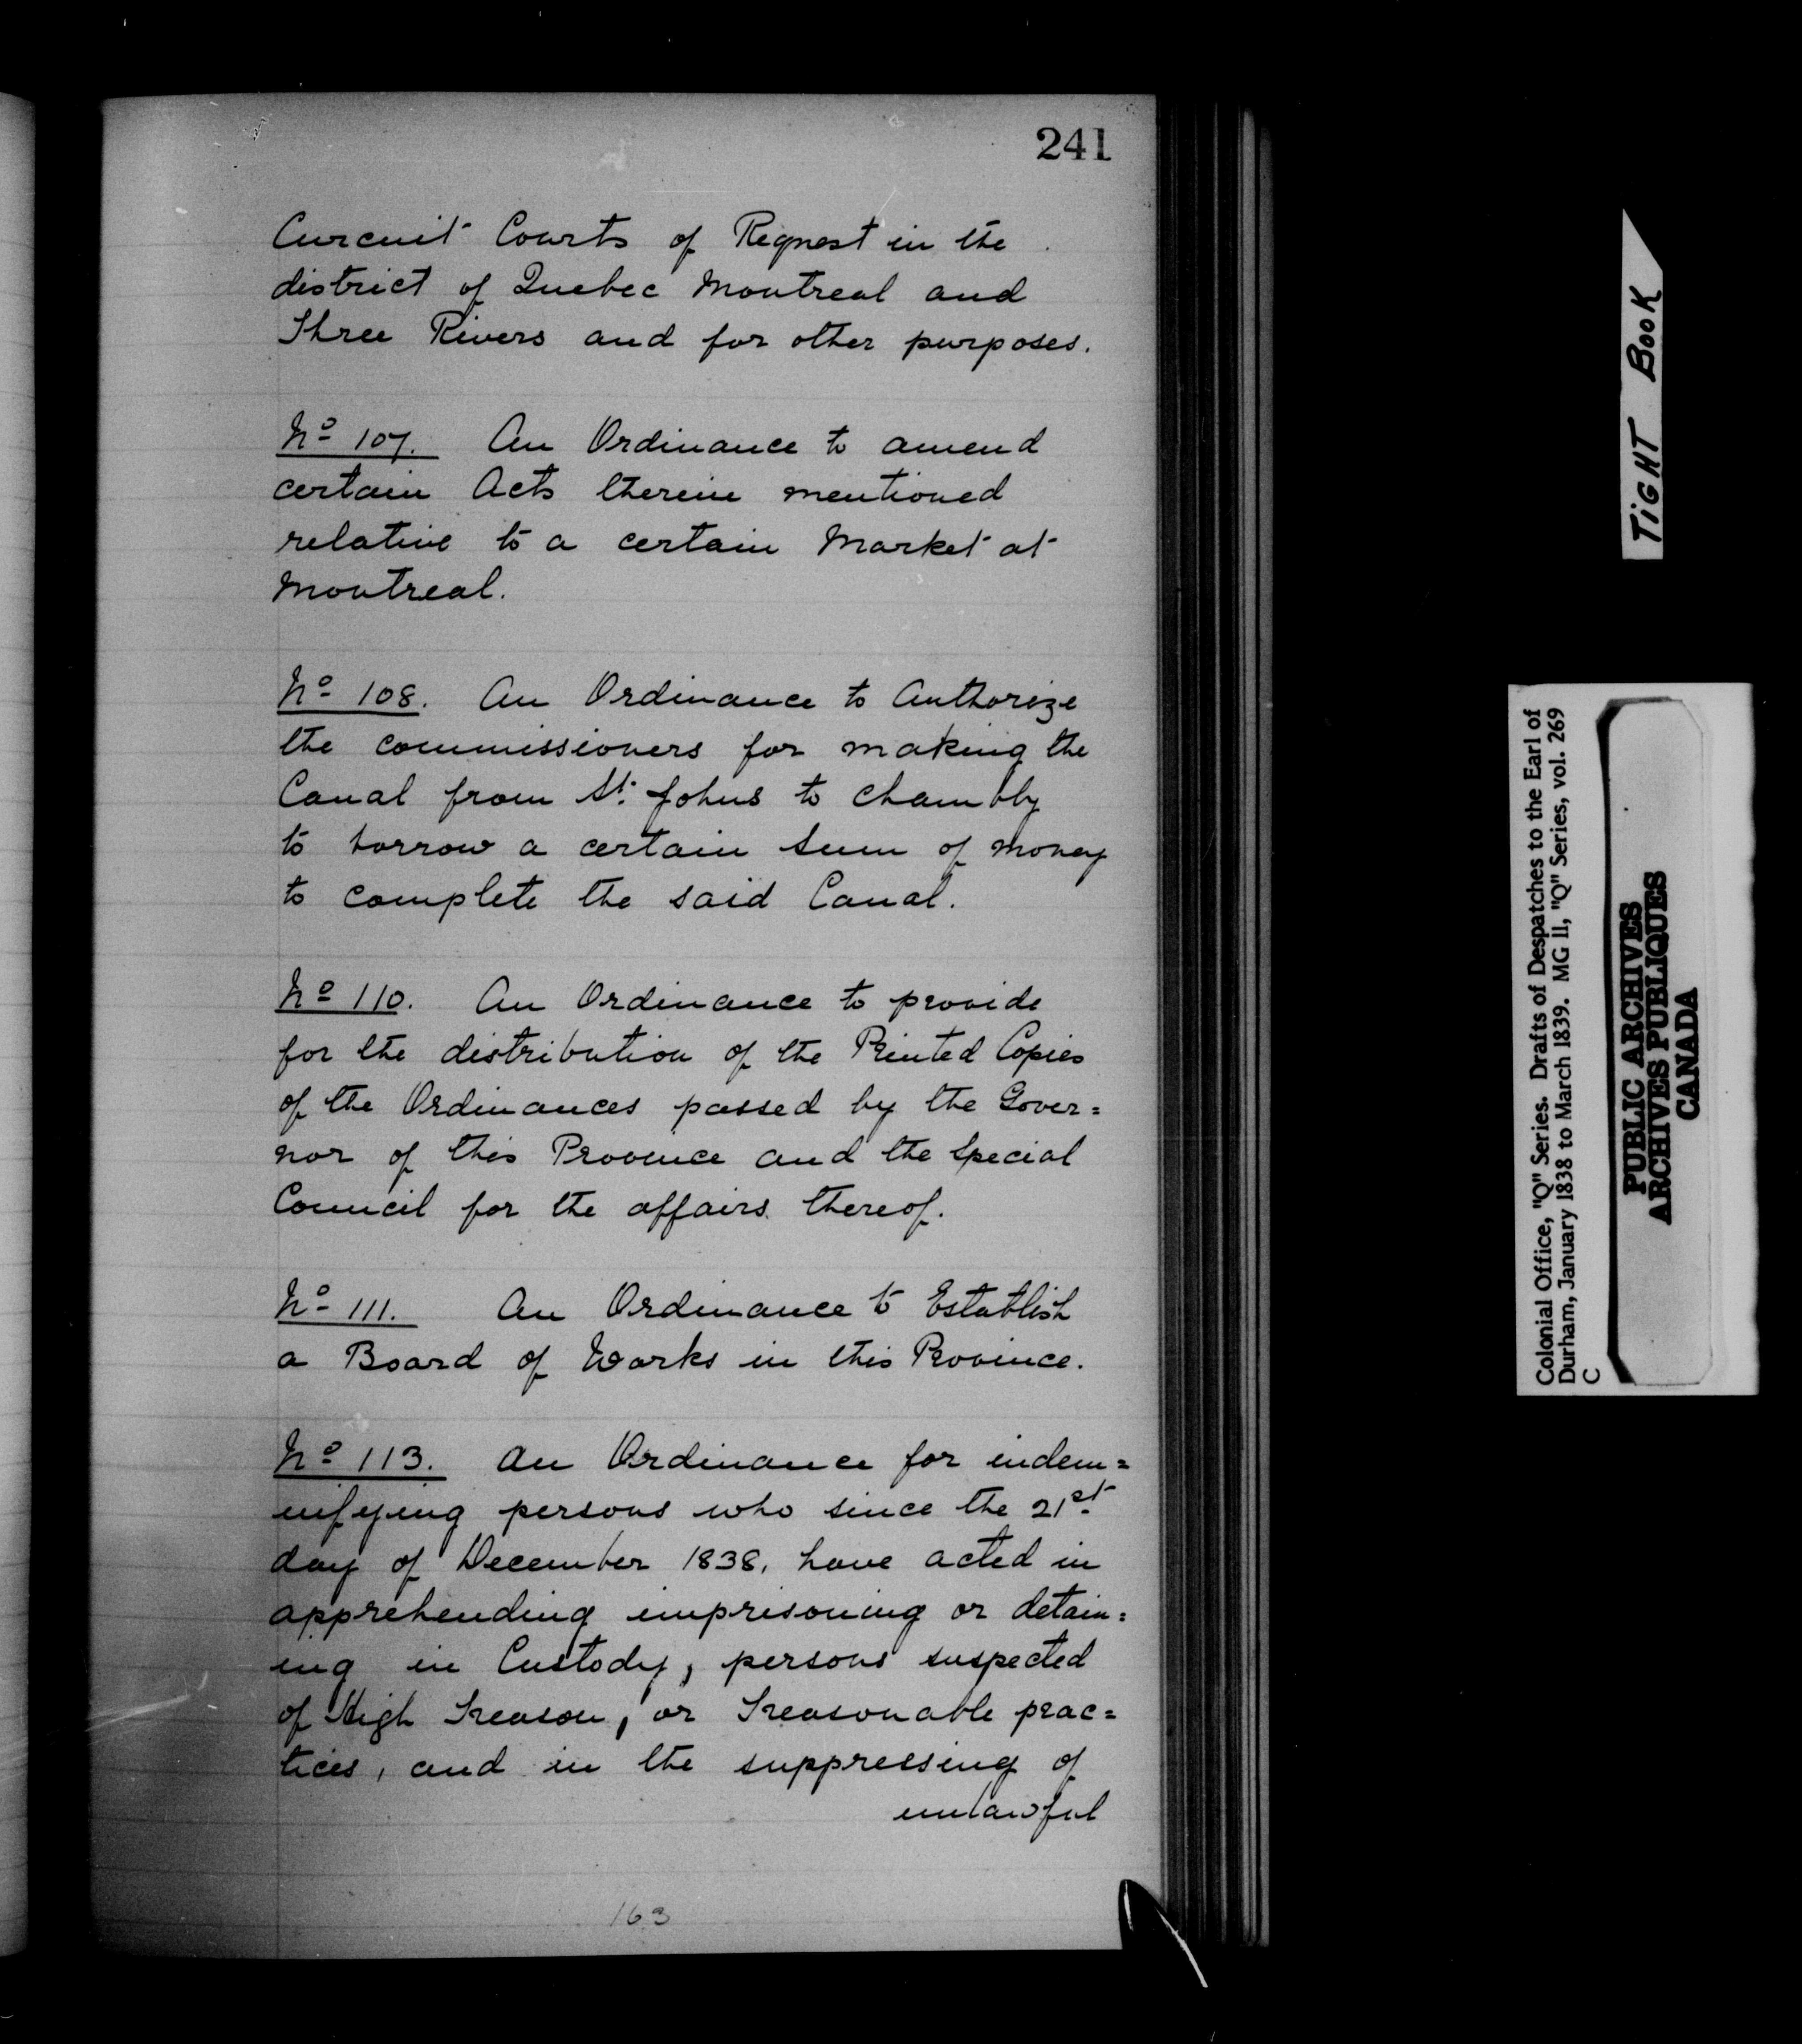 241
Curcuit Courts of Request in the
district of Quebec Montreal and
Three Rivers and for other purposes.
No 107. An Ordinance to amend
certain Acts therein mentioned
relative to a certain Market at
Montreal.
No 108. An Ordinance to Authorize
the commissioners for making the
Canal from St. Johns to Chambly
to borrow a certain sum of money
to complete the said Canal.
No 110. An Ordinance to provide
for the distribution of the Printed Copies
of the Ordinances passed by the Gover=
nor of this Province and the Special
Council for the affairs thereof.
No 111. An Ordinance to Establish
a Board of Works in this Province.
No 113. An Ordinance for indem=
nifying persons who since the 21st
day of December 1838, have acted in
apprehending imprisoning or detain=
ing in Custody, persons suspected
of High Treason, or Treasonable prac=
tices, and in the suppressing of
unlawful
163
TIGHT BOOK
Colonial Office, "Q" Series. Drafts of Despatches to the Earl of
Durham, January 1838 to March 1839. MG 11, "Q" Series, vol. 269
C
PUBLIC ARCHIVES
ARCHIVES PUBLIQUES
CANADA